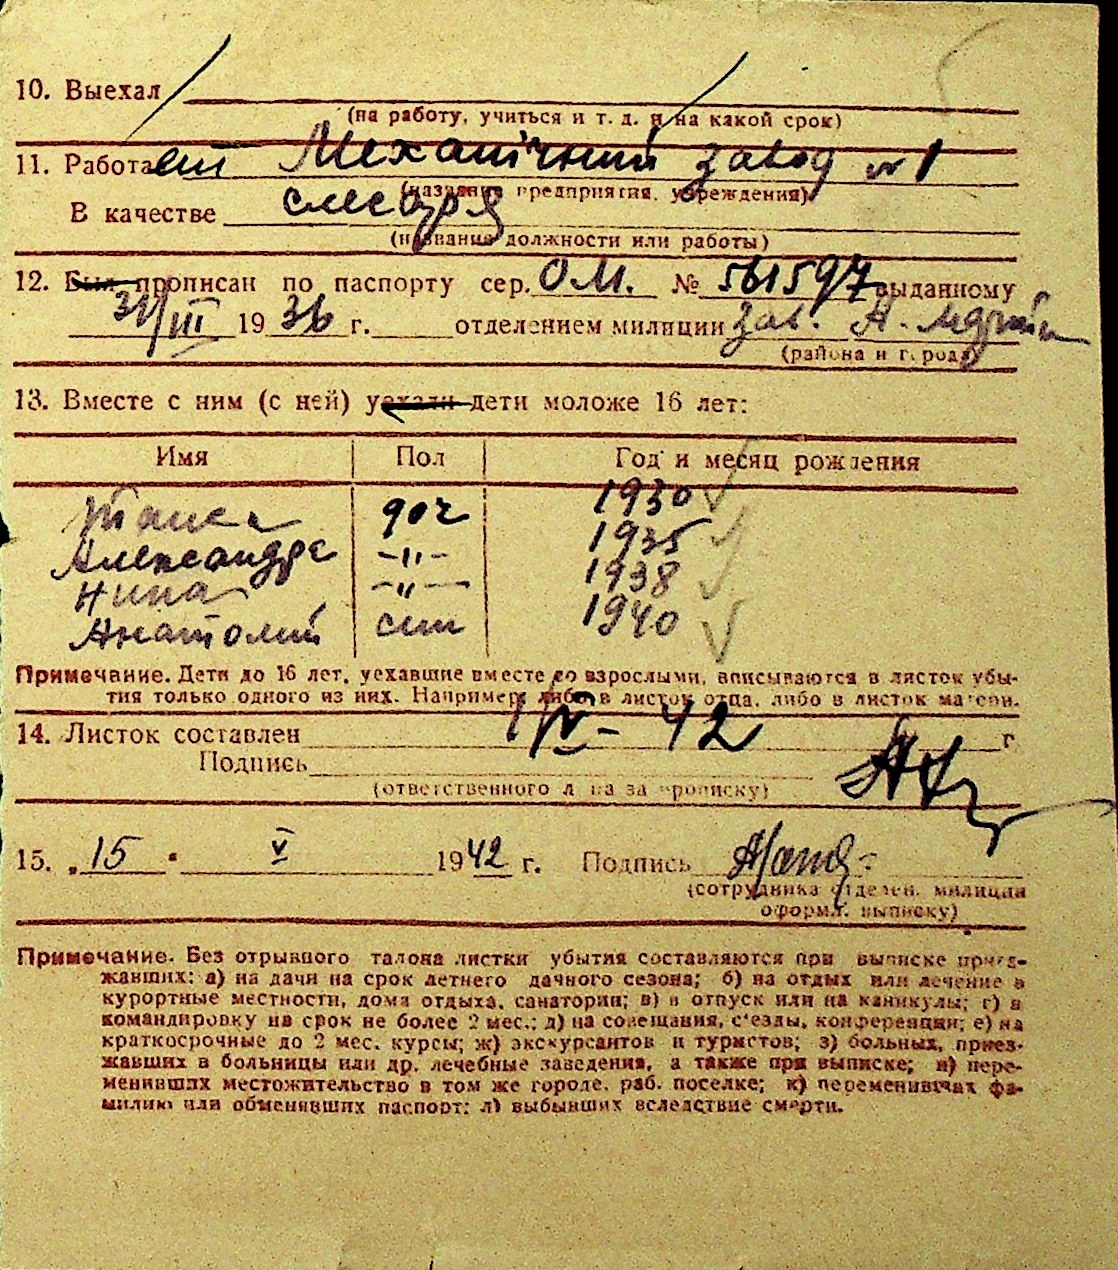 10. Выехал
(на работу, учиться и т. д. и на какой срок)
11. Работает Механічний завод № 1
(название предприятия, учреждения)
В качестве слесаря
(название должности или работы)
12. Был прописан по паспорту сер. ОМ. № 561597 выданному
31/III 1936 г. отделением милиции Зал.
(района и города)
13. Вместе с ним (с ней) уехали дети моложе 16 лет:
Имя Пол Год и месяц рождения
доч 1930
Александра -"- 1935
Нина -"- 1938
Анатолий сын 1940
Примечание. Дети до 16 лет, уехавшие вместе со взрослыми, вписываются в листок убы-
тия только одного из них. Например: либо в листок отца, либо в листок матери.
14. Листок составлен 1/IV - 42 г.
Подпись
(ответственного лица за прописку)
15. „15" V 1942 г. Подпись
(сотрудника отделен. милиции
оформл. выписку)
Примечание. Без отрывного талона листки убытия составляются при выписке приез-
жавших: а) на дачи на срок летнего дачного сезона; б) на отдых или лечение в
курортные местности, дома отдыха, санатории; в) в отпуск или на каникулы; г) в
командировку на срок не более 2 мес.; д) на совещания, с'езды, конференции; е) на
краткосрочные до 2 мес. курсы; ж) экскурсантов и туристов; з) больных, приез-
жавших в больницы или др. лечебные заведения, а также при выписке; и) пере-
менивших местожительство в том же городе, раб. поселке; к) переменивших фа-
милию или обменявших паспорт; л) выбывших вследствие смерти.